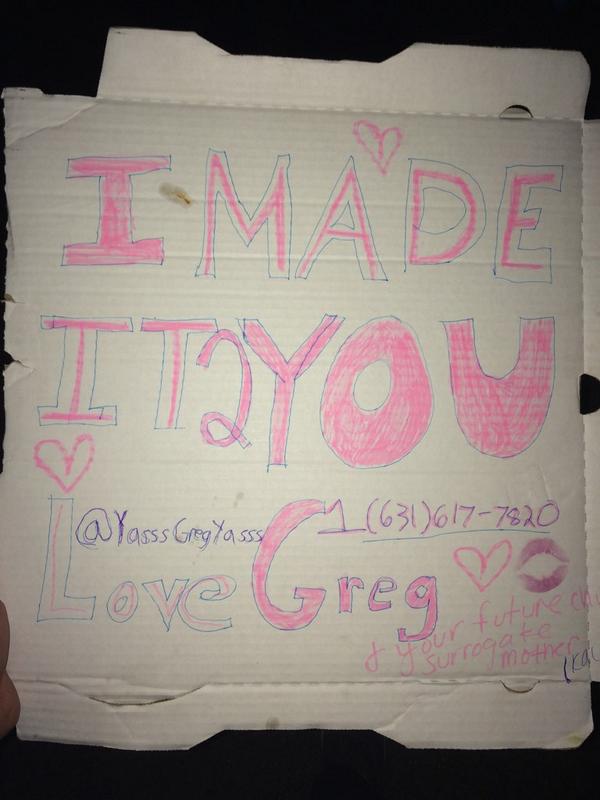 I MADE
IT 2 YOU
@YasssGregYasss 1(631)617-7820
Love Greg
& your future
surrogate
mother